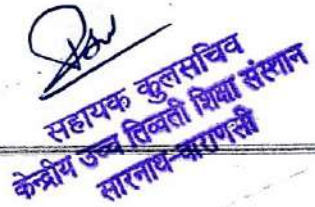 सहायक कुलसचिव
केन्द्रीय उच्च तिब्बती शिक्षा संस्थान
सारनाथ-वाराणसी